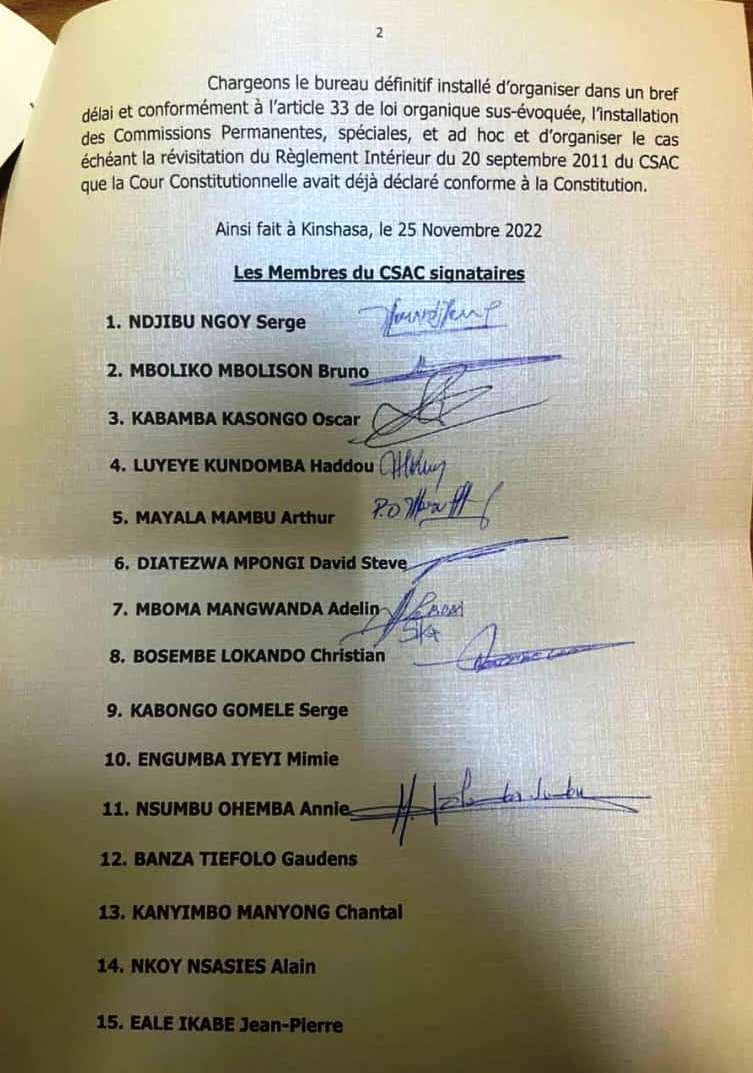 2
Chargeons le bureau définitif installé d'organiser dans un bref
délai et conformément à l'article 33 de loi organique sus-évoquée, l'installation
des Commissions Permanentes, spéciales, et ad hoc et d'organiser le cas
échéant la révisitation du Règlement Intérieur du 20 septembre 2011 du CSAC
que la Cour Constitutionnelle avait déjà déclaré conforme à la Constitution.
Ainsi fait à Kinshasa, le 25 Novembre 2022
Les Membres du CSAC signataires
1. NDJIBU NGOY Serge
2. MBOLIKO MBOLISON Bruno
3. KABAMBA KASONGO Oscar
4. LUYEYE KUNDOMBA Haddou
5. MAYALA MAMBU Arthur P.O
6. DIATEZWA MPONGI David Steve
7. MBOMA MANGWANDA Adelin
8. BOSEMBE LOKANDO Christian
9. KABONGO GOMELE Serge
10. ENGUMBA IYEYI Mimie
11. NSUMBU OHEMBA Annie
12. BANZA TIEFOLO Gaudens
13. KANYIMBO MANYONG Chantal
14. NKOY NSASIES Alain
15. EALE IKABE Jean-Pierre